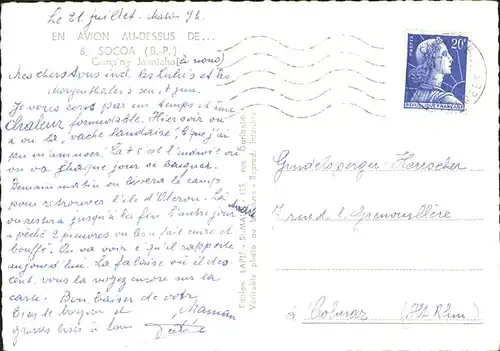 Le 21 juillet. Matin 9h.
EN AVION AU-DESSUS DE...
6. SOCOA (B.-P.)
Camping Juantcho
(à nous)
Mes chers tous incl. les Lulu's et les
s en et gum.
Je vous écris par un temps et une
chaleur formidable. Hier soir on
a vu la "vache landaise", ce que j'ai
pu m'amuser. La + c'est l'endroit où
on va chaque jour se baigner.
Demain matin on lèvera le camp
pour retrouver l'île d'Oléron. Là
on restera jusqu'à la fin. L'autre jour André
a pêché 2 pieuvres on les a fait cuire et
bouffé. On va voir c'qu'il rapporte
aujourd'hui. La falaise où il des-
cent, vous la voyez encore sur la
carte. Bon baiser de votre
bras de et Maman
grosses bises à tous
Edition LAPIE - St-MAUR - 125, rue Garibaldi
Véritable photo au - Reprod. Interdite
POSTES
20F
REPUBLIQUE FRANÇAISE
Gundelsperger-Herrscher
7 rue de l
à Colmar (Ht Rhin)